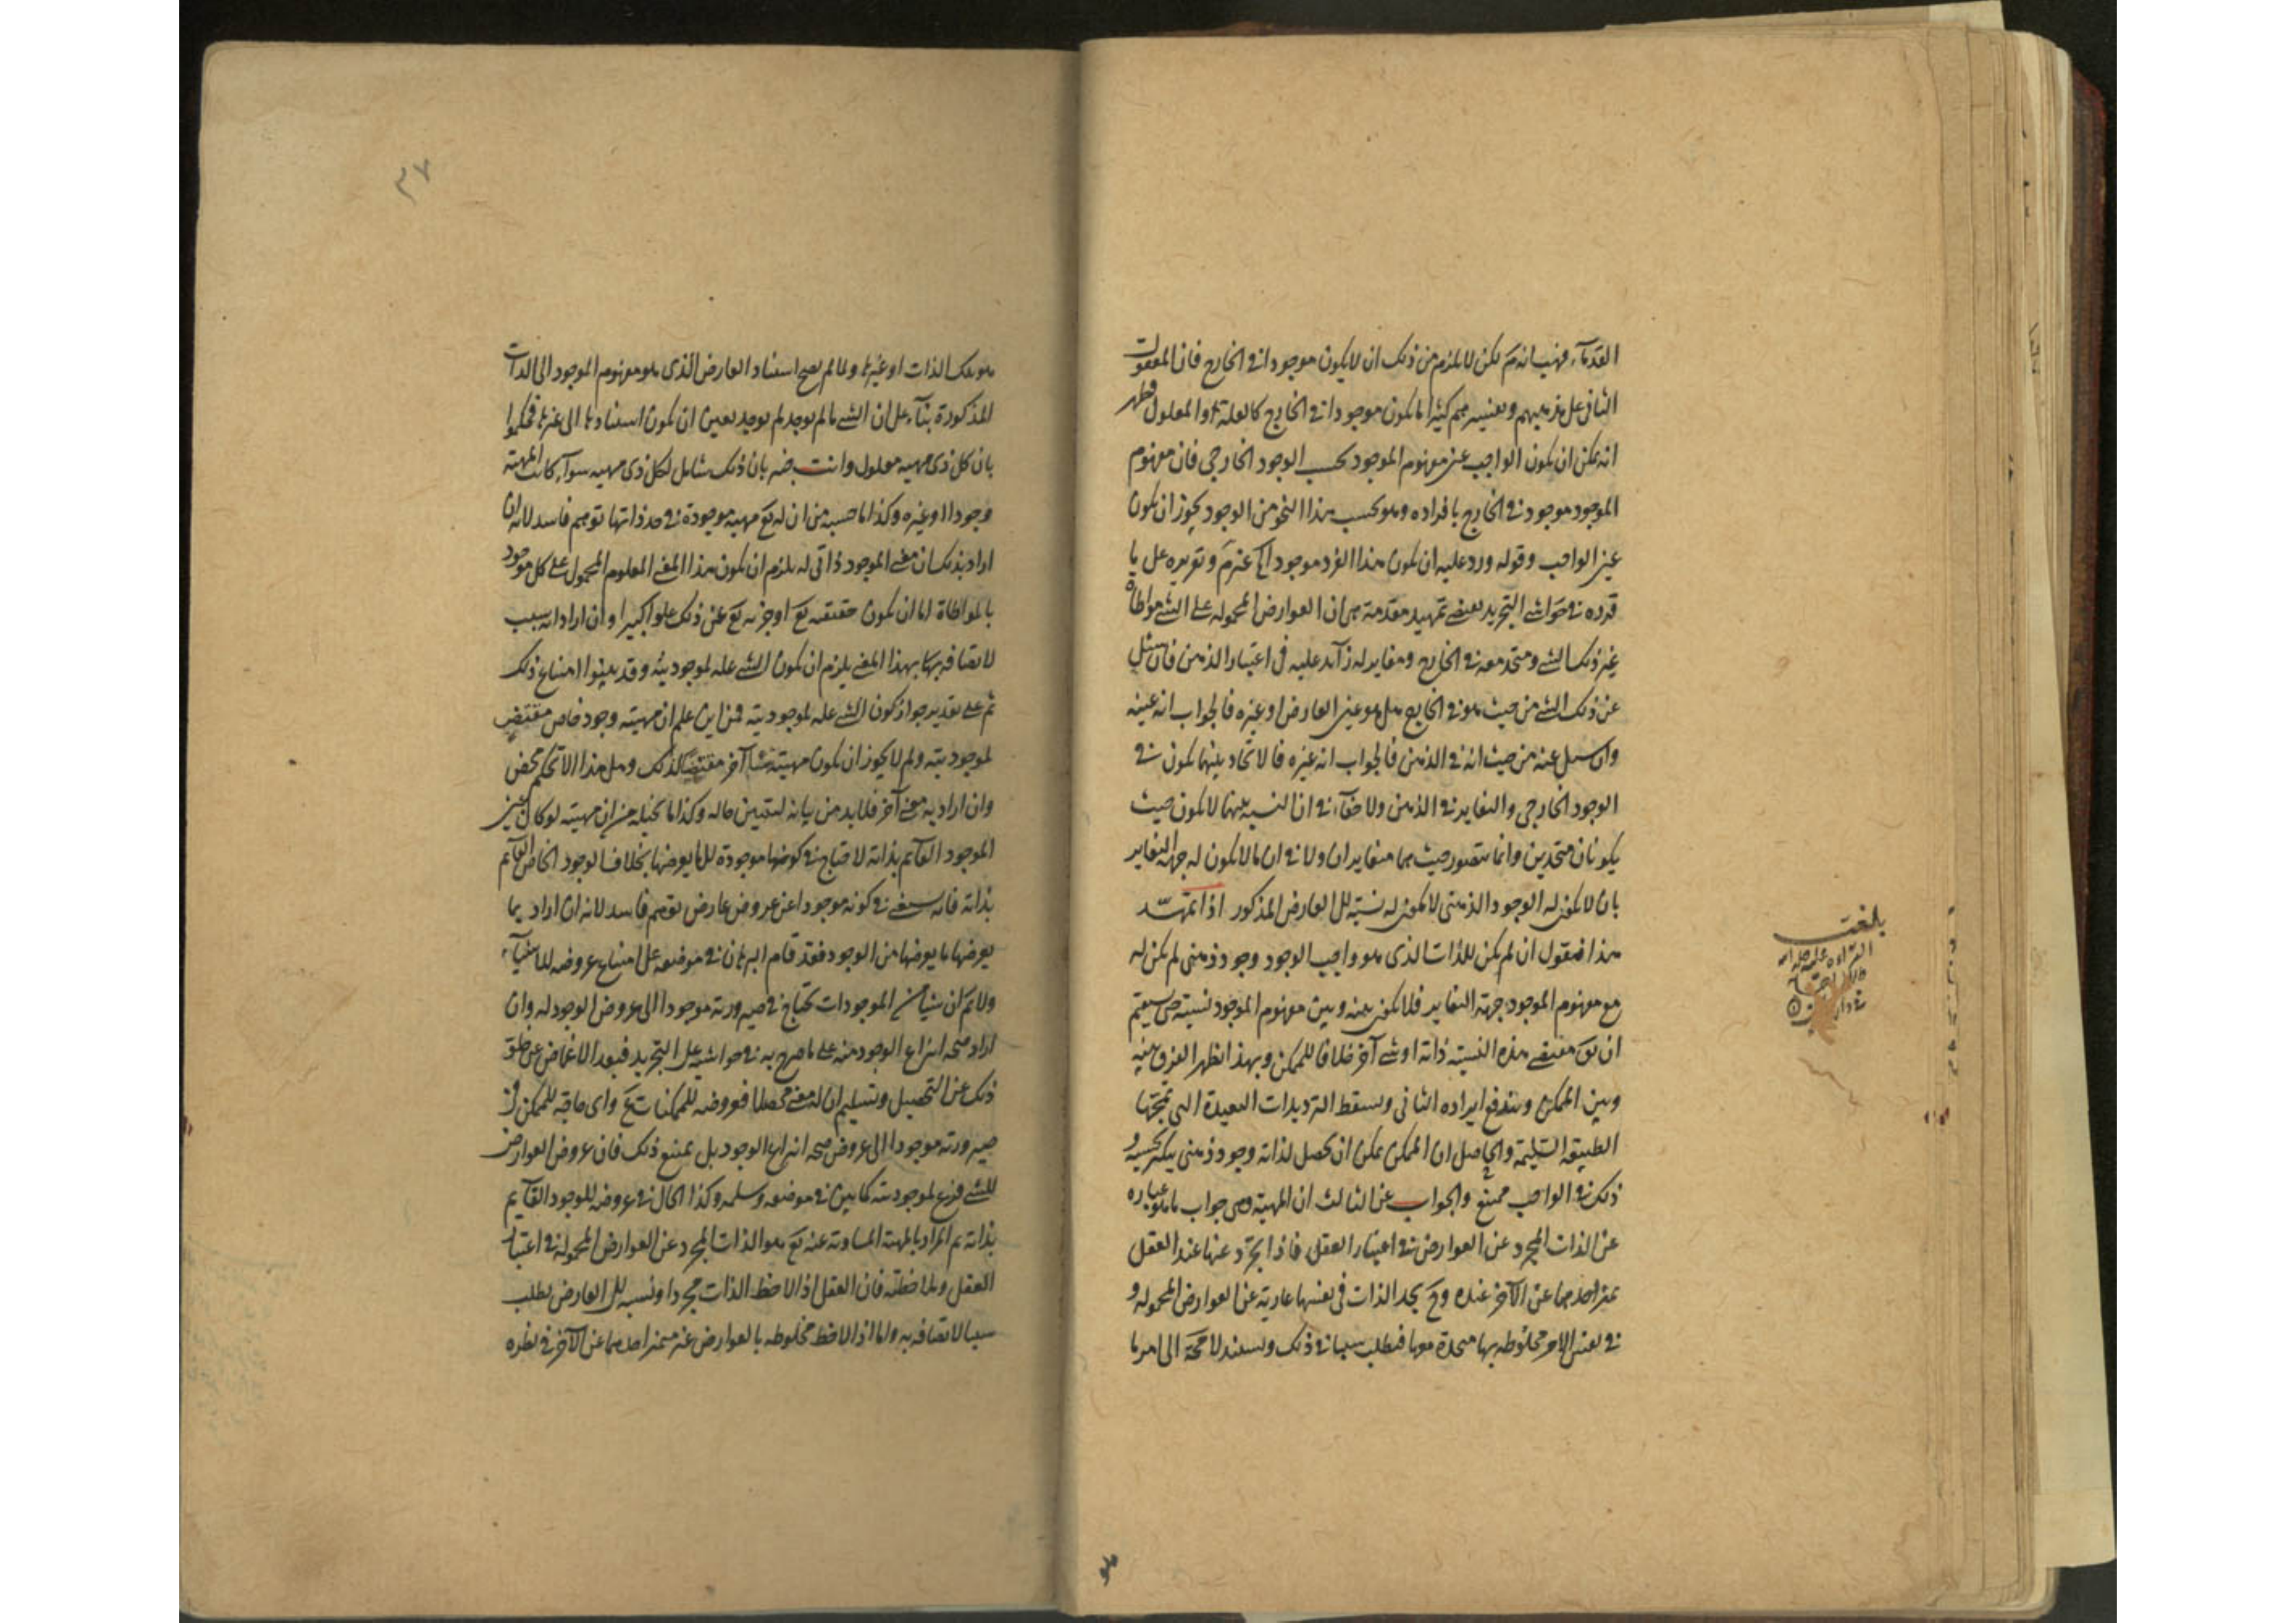 القدمآء فهب انه مَ لكن لا يلزم من ذلك ان لا يكون موجودا في الخارج فان المعقولات
الثانى على مذهبهم وبعينيه هم كثيرا ما يكون موجودا في الخارج كالعلة والمعلول فظهر
انه يمكن ان يكون الواجب عين مفهوم الموجود بحسب الوجود الخارجي فان مفهوم
الموجود موجود في الخارج بافراده وهو بحسب هذا النحو من الوجود يجوز ان يكون
عين الواجب وقوله ورد عليه ان يكون هذا الفرد موجودا وتقريره على ما
قرره في حواشي التجريد يقتضي تمهيد مقدمة هي ان العوارض المحموله على الشئ مواطاة
غير ذلك الشئ ومتحد معه في الخارج ومغاير له زآئد عليه في اعتبار الذهن فان سئل
عن ذلك الشئ من حيث هو في الخارج هل هو عين العارض او غيره فالجواب انه عينه
وان سئل عنه من حيث انه في الذهن فالجواب انه غيره فالاتحاد بينهما يكون في
الوجود الخارجي والتغاير في الذهن ولا خفآء في ان النسبه بينهما لا يكون حيث
يكونان متحدين وانما يتصور حيث هما متغايران ولا في ان ما لا يكون له جهة التغاير
بان لا يكون له الوجود الذهنى لا يكون له نسبته الى العارض المذكور اذا تمهّد
هذا فنقول ان لم يكن للذات الذى هو واجب الوجود وجود ذهنى لم يكن له
مع مفهوم الموجود جهة التغاير فلا يكون بينه وبين مفهوم الموجود نسبته حتى يستقيم
ان يق مقتضى هذه النسبته ذاته او شئ آخر خلافا للممكن وبهذا يظهر الفرق بينه
وبين الممكن ويندفع ايراده الثانى ويسقط الترديدات البعيدة التى تمجّها
الطبيعة السليمة والحاصل ان الممكن يمكن ان يحصل لذاته وجود ذهنى بحسبه و
ذلك في الواجب ممتنع والجواب عن الثالث ان المهية وهى جواب ما هو عباره
عن الذات المجرد عن العوارض في اعتبار العقل فاذا تجرّد عنها عند العقل
يميز احدهما عن الآخر عنده وح يجد الذات في نفسها عارية عن العوارض المحموله و
في نفس الامر مخلوطه بها متحدة معها فيطلب سببا في ذلك ويسند لا محة الى امر ما
بلغت
القراءه عليه
هو
٣٧
هو تلك الذات او غيرها ولما لم يصح استناد العارض الذى هو مفهوم الموجود الى الذات
المذكورة بنآء على ان الشئ ما لم يوجد لم يوجد تعين ان يكون استنادها الى غيرها فحكموا
بان كل ذى مهيه معلول وانت خبر بان ذلك شامل لكل ذى مهيه سوآء كانت المهية
وجودا او غيره وكذا ما حسبه من ان له تع مهيه موجودة في حد ذاتها توهم فاسد لانه ان
اراد بذلك ان معنى الموجود ذاتى له يلزم ان يكون هذا المعنى المعلوم المحمول على كل موجود
بالمواطاة اما ان يكون حقيقته تع او جزءه تع عن ذلك علوا كبيرا وان اراد انه سبب
لاتصافه بها بهذا المعنى يلزم ان يكون الشئ علة لموجوديته وقد بينوا امتناع ذلك
ثم على تقدير جواز كون الشئ علة لموجوديته فمن اين علم ان مهيته وجود خاص مقتض
لموجوديته ولم لا يجوز ان يكون مهيته شيئا آخر مقتضيا لذلك وهل هذا الا تحكم محض
وان اراد به معنى آخر فلا بد من بيانه ليتبين حاله وكذا ما تخيله من ان مهيته لو كان غير
الموجود القآئم بذاته لاحتاج في كونها موجودة الى ما يعرضها بخلاف الوجود الخاص القآئم
بذاته فانه يستغنى في كونه موجودا عن عروض عارض توهم فاسد لانه ان اراد بما
يعرضها ما يعرضها من الوجود فقد قام البرهان في موضعه على امتناع عروضه للاشيآء
ولا تم ان شيئا من الموجودات يحتاج في صيرورته موجودا الى عروض الوجود له وان
اراد صحه انتزاع الوجود منه على ما صرح به في حواشيه على التجريد فبعد الاغماض عن خلق
ذلك عن التحصيل وتسليم ان له معنى محصلا فعروضه للممكنات مح واى حاجة للممكن في
صيرورته موجودا الى عروض صحه انتزاع الوجود بل يمتنع ذلك فان عروض العوارض
للشئ فرع لموجوديته كما بين في موضعه وسلمه وكذا الحال في عروضه للوجود القآيم
بذاته ثم المراد بالمهية المساوية عنه تع هو الذات المجرد عن العوارض المحمولة في اعتبار
العقل وملاحظته فان العقل اذا لاحظ الذات مجردا ونسبه الى العارض يطلب
سببا لاتصافه به واما اذا لاحظ مخلوطه بالعوارض غير متميز احدهما عن الآخر في نظره